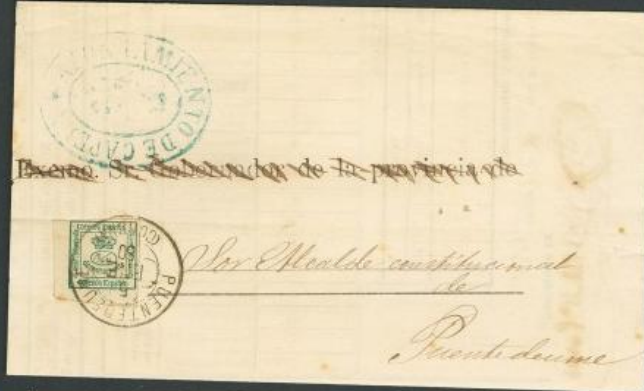 AYUNTAMIENTO DE CAPELA
Excmo. Sr. Gobernador de la provincia de
PUENTEDEUME
80
Sor Alcalde constitucional
de
Puentedeume